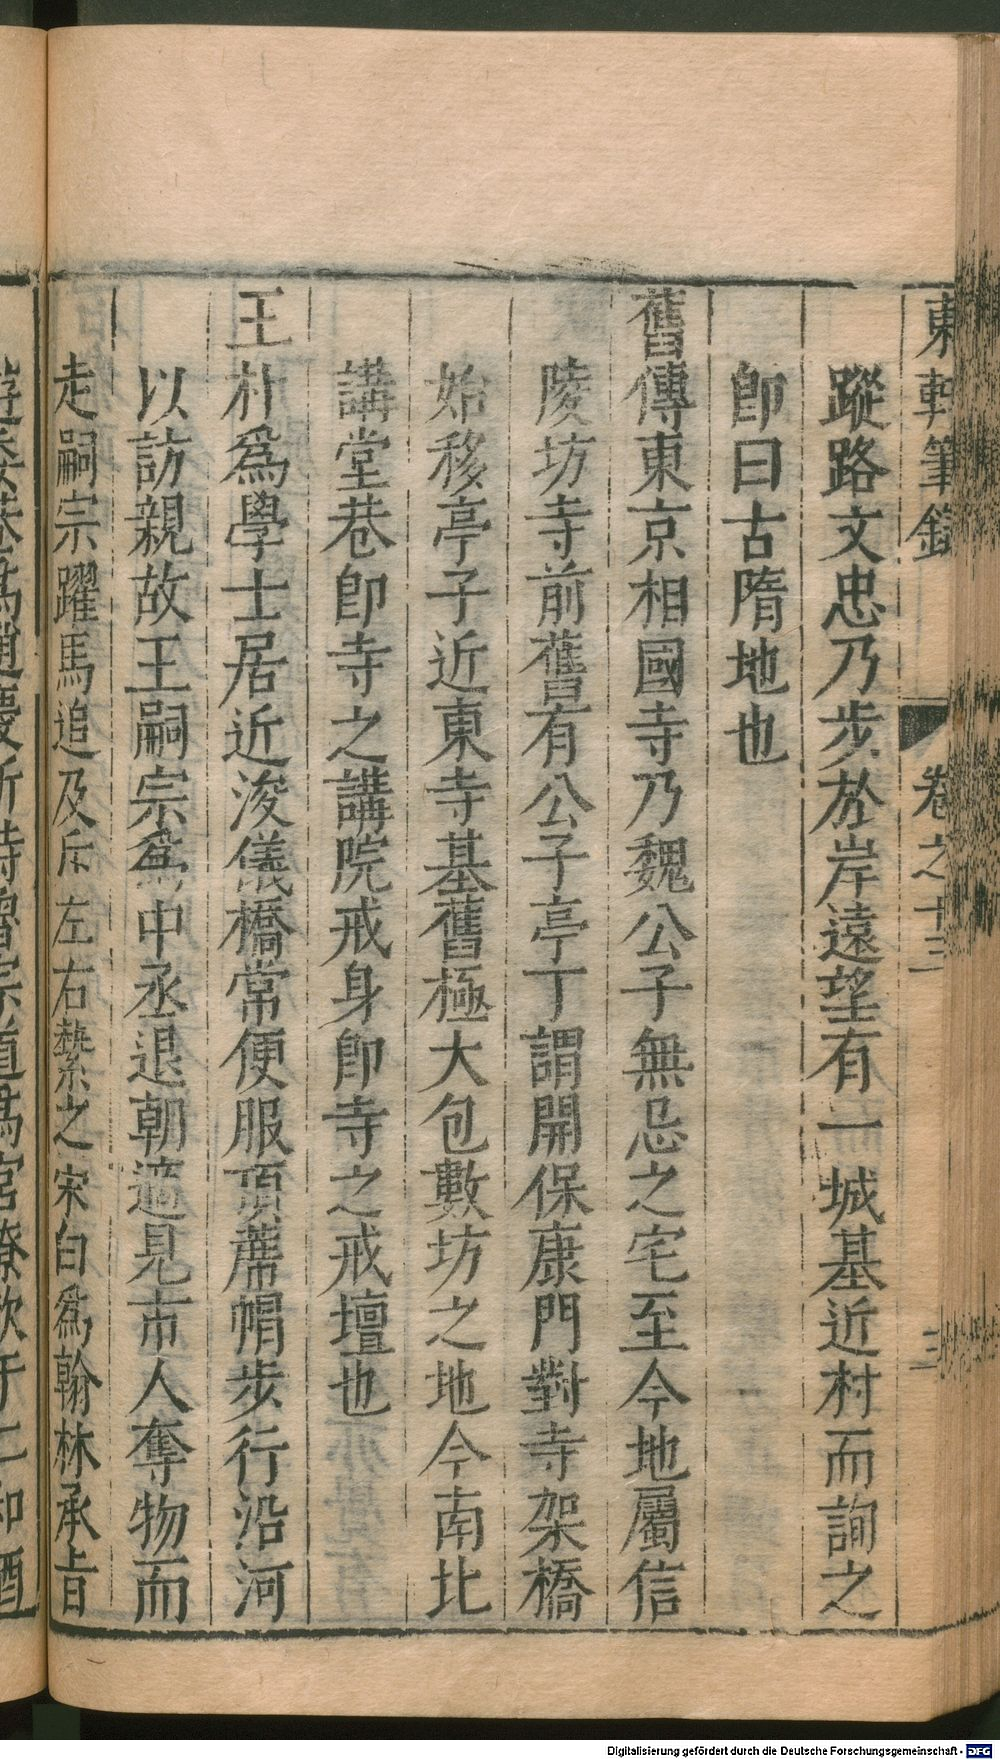 東軒筆錄　卷之十三　三
蹤路文忠乃步於岸遠望有一城基近村而詢之
卽曰古隋地也
舊傳東京相國寺乃魏公子無忌之宅至今地屬信
陵坊寺前舊有公子亭丁謂開保康門對寺架橋
始移亭子近東寺基舊極大包數坊之地今南北
講堂巷卽寺之講院戒身卽寺之戒壇也
王朴爲學士居近浚儀橋常便服頂蓆帽步行沿河
以訪親故王嗣宗爲中丞退朝適見市人奪物而
走嗣宗躍馬追及斥左右縶之宋白爲翰林承旨
Digitalisierung gefördert durch die Deutsche Forschungsgemeinschaft - DFG